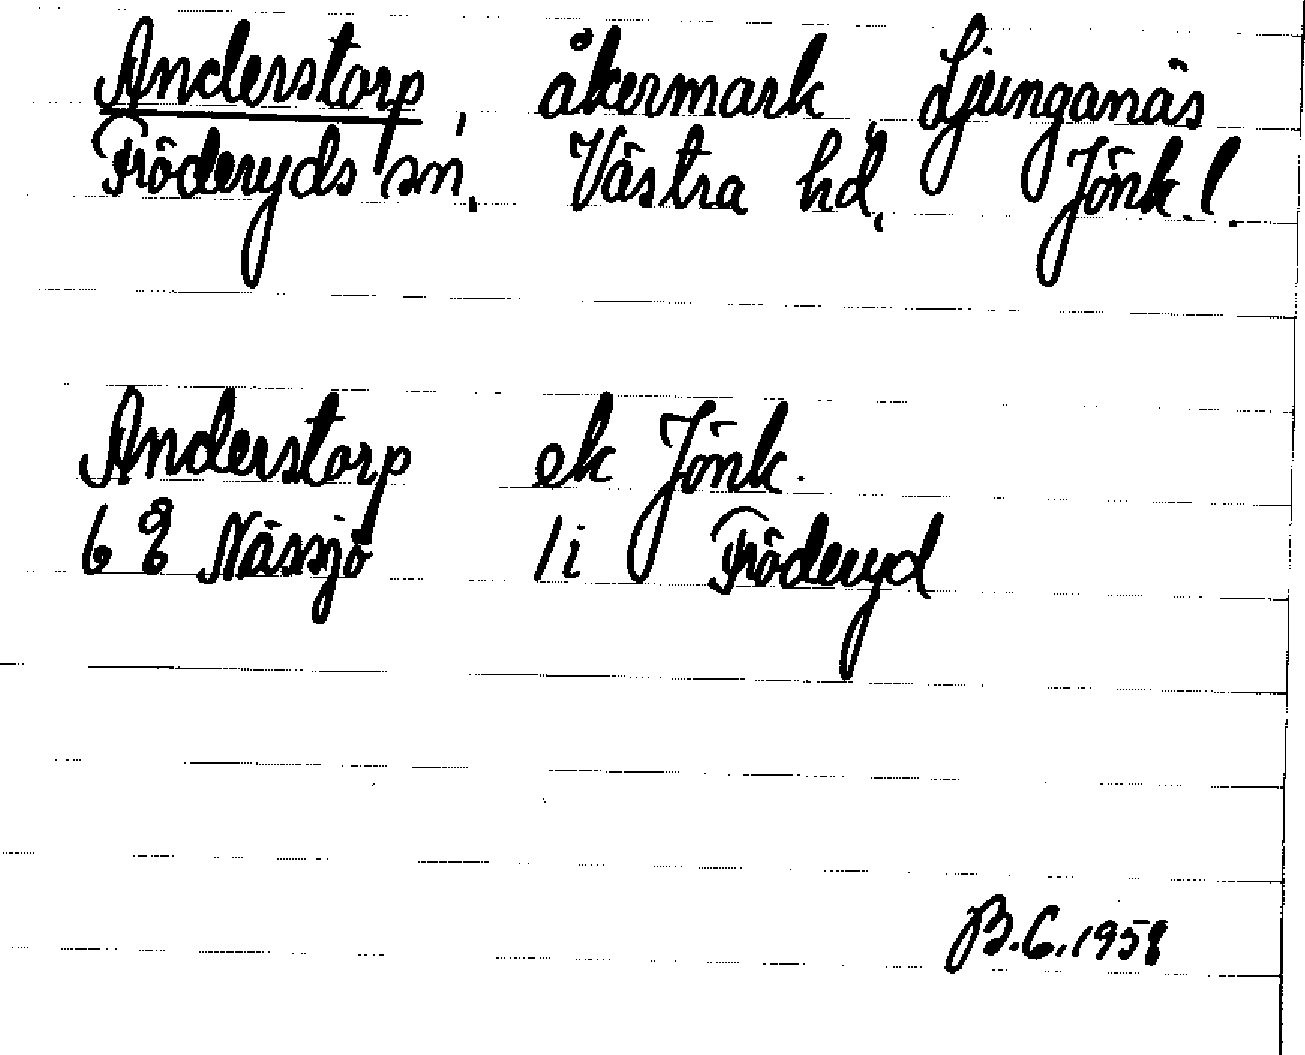 Anderstorp, åkermark, Ljunganäs
Fröderyds sn. Västra hd, Jönk. l.
Anderstorp ek Jönk.
6 E Nässjö 1 i Fröderyd
B.C. 1958